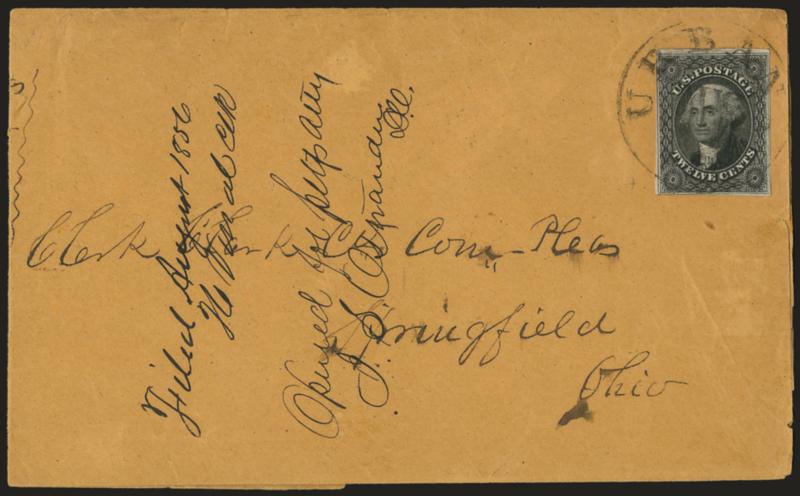 URBAN
U.S. POSTAGE
TWELVE CENTS
Clerk Clark Co Com,, Pleas
Springfield
Ohio
Filed August 1856
clk
Opened for